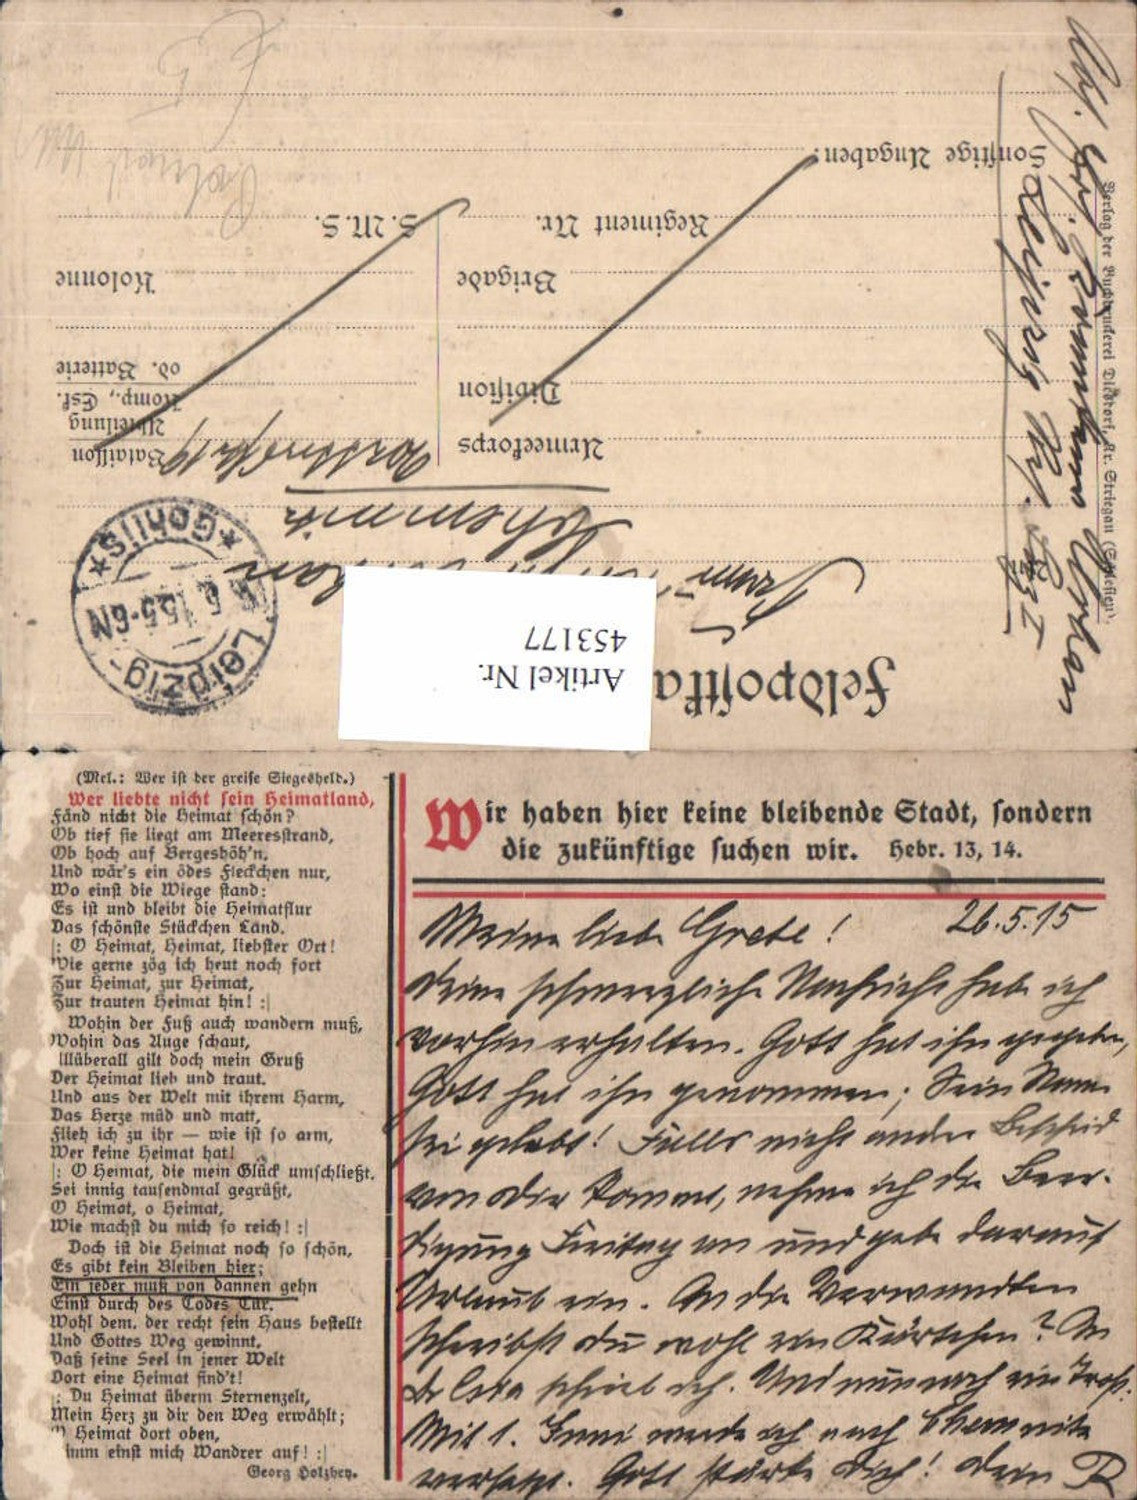 Feldpostka
Artikel Nr.
453177
Frau
Chemnitz
Armeekorps
Division
Brigade
Regiment Nr.
Sonstige Angaben:
Bataillon
Abteilung
Komp., Esk.
od. Batterie
Kolonne
S.M.S.
Leipzig-
5-6N
*Gohlis*
Verlag der Buchdruckerei Diesdorf, Kr. Striegau (Schlesien).
(Mel.: Wer ist der greise Siegesheld.)
Wer liebte nicht sein Heimatland,
Fänd nicht die Heimat schön?
Ob tief sie liegt am Meeresstrand,
Ob hoch auf Bergeshöh'n,
Und wär's ein ödes Fleckchen nur,
Wo einst die Wiege stand:
Es ist und bleibt die Heimatflur
Das schönste Stückchen Land.
|: O Heimat, Heimat, liebster Ort!
Wie gerne zög ich heut noch fort
Zur Heimat, zur Heimat,
Zur trauten Heimat hin! :|
Wohin der Fuß auch wandern muß,
Wohin das Auge schaut,
Allüberall gilt doch mein Gruß
Der Heimat lieb und traut.
Und aus der Welt mit ihrem Harm,
Das Herze müd und matt,
Flieh ich zu ihr — wie ist so arm,
Wer keine Heimat hat!
|: O Heimat, die mein Glück umschließt,
Sei innig tausendmal gegrüßt,
O Heimat, o Heimat,
Wie machst du mich so reich! :|
Doch ist die Heimat noch so schön,
Es gibt kein Bleiben hier;
Ein jeder muß von dannen gehn
Einst durch des Todes Tür.
Wohl dem, der recht sein Haus bestellt
Und Gottes Weg gewinnt,
Daß seine Seel in jener Welt
Dort eine Heimat find't!
|: Du Heimat überm Sternenzelt,
Mein Herz zu dir den Weg erwählt;
O Heimat dort oben,
imm einst mich Wandrer auf! :|
Georg Holzhey.
Wir haben hier keine bleibende Stadt, sondern
die zukünftige suchen wir. Hebr. 13, 14.
Meine liebe Grete! 26.5.15
Deine schmerzliche Nachricht habe ich
vorhin erhalten. Gott hat ihn gegeben,
Gott hat ihn genommen; Sein Name
sei gelobt! Falls nicht andrer Bescheid
von Dir kommt, nehme ich die Beer-
digung Freitag an und gebe darauf
Urlaub ein. An die Verwandten
schreibst du wohl ein Kärtchen? An
schrieb ich. Und nun noch ein Trost.
Mit 1. Juni werde ich nach Chemnitz
versetzt. Gott stärke Dich! Dein R